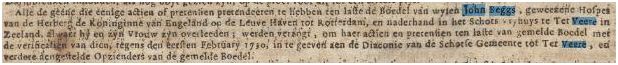 Alle de geene die eenige actien of pretentien pretendeeren te hebben ten laste de Boedel van wylen John Beggs, geweezene Hospes
van de Herberg de Koninginne van Engeland op de Leuve Haven tot Rotterdam, en naderhand in het Schots huys te Ter Veere in
Zeeland, alwaar hy en zyn Vrouw zyn overleeden; werden verzogt, om haer actien en pretentien ten laste van gemelde Boedel met
de verificatien van dien, tegens den eersten February 1730, in te geeven aen de Diaconie van de Schotse Gemeente tot Ter Veere, en
verdere aengestelde Opzienders van de gemelde Boedel.